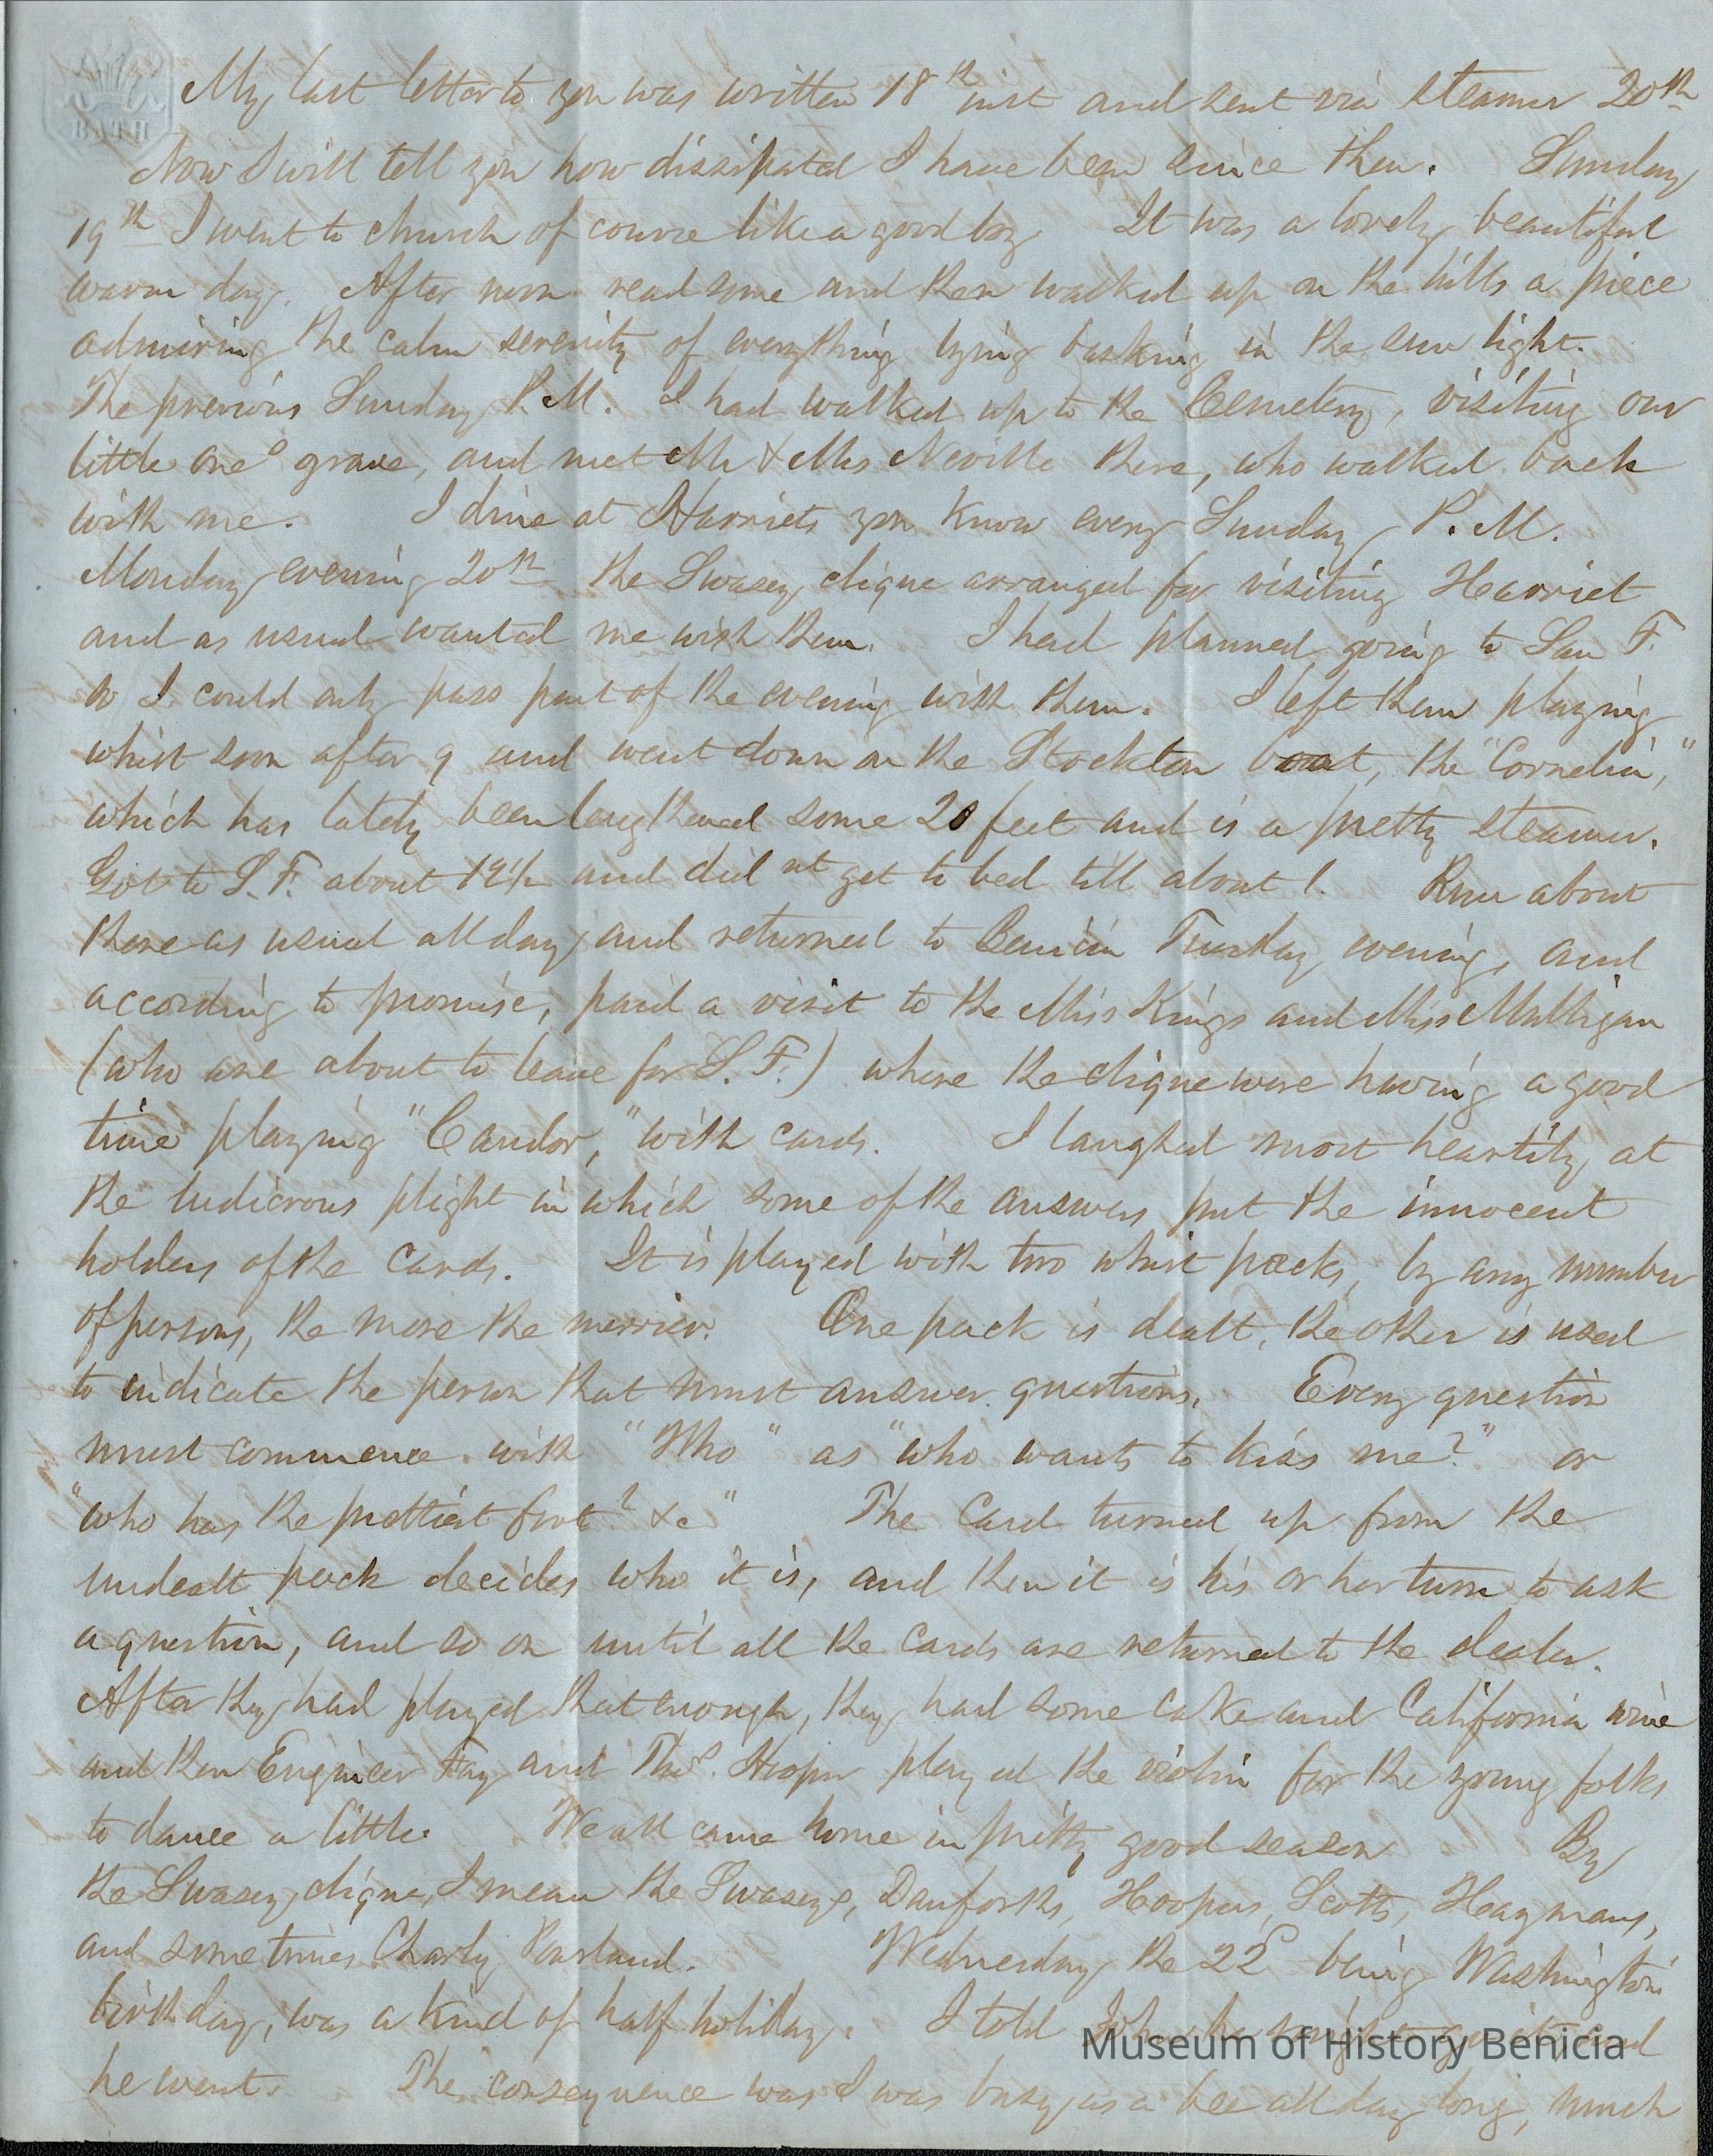 BATH
My last letter to you was written 18th inst and sent via steamer 20th
Now I will tell you how dissipated I have been since then. Sunday
19th I went to church of course like a good boy It was a lovely beautiful
warm day. After noon read some and then walked up on the hills a piece
admiring the calm serenity of everything lying basking in the sun light.
The previous Sunday P.M. I had walked up to the Cemetery, visiting our
little one's grave, and met Mr & Mrs Neville there, who walked back
with me. I dine at Harriets you know every Sunday P.M.
Monday evening 20th the Swasey clique arranged for visiting Harriet
and as usual wanted me with them. I had planned going to San F.
so I could only pass part of the evening with them. I left them playing
whist soon after 9 and went down on the Stockton boat, the "Cornelia,"
which has lately been lengthened some 20 feet and is a pretty steamer.
Got to S.F. about 12½ and did nt get to bed till about 1. Run about
there as usual all day and returned to Benicia Tuesday evening, and
according to promise, paid a visit to the Miss Kings and Miss Mulligan
(who are about to leave for S.F.) where the clique were having a good
time playing "Candor," with cards. I laughed most heartily at
the ludicrous plight in which some of the answers put the innocent
holders of the cards. It is played with two whist packs, by any number
of persons, the more the merrier. One pack is dealt, the other is used
to indicate the person that must answer questions. Every question
must commence with "Who" as "who wants to kiss me?" or
"who has the prettiest foot? &c" The card turned up from the
undealt pack decides who it is, and then it is his or her turn to ask
a question, and so on until all the cards are returned to the dealer.
After they had played that enough, they had some cake and California wine
and then Engineer Fay and Thos. Hooper played the violin for the young folks
to dance a little. We all came home in pretty good season By
the Swasey clique, I mean the Swaseys, Danforths, Hoopers, Scotts, Haymans,
and sometimes Charly Rowland. Wednesday the 22d being Washington's
birthday, was a kind of half holiday. I told John he might go it and
he went. The consequence was I was busy as a bee all day long, much
Museum of History Benicia